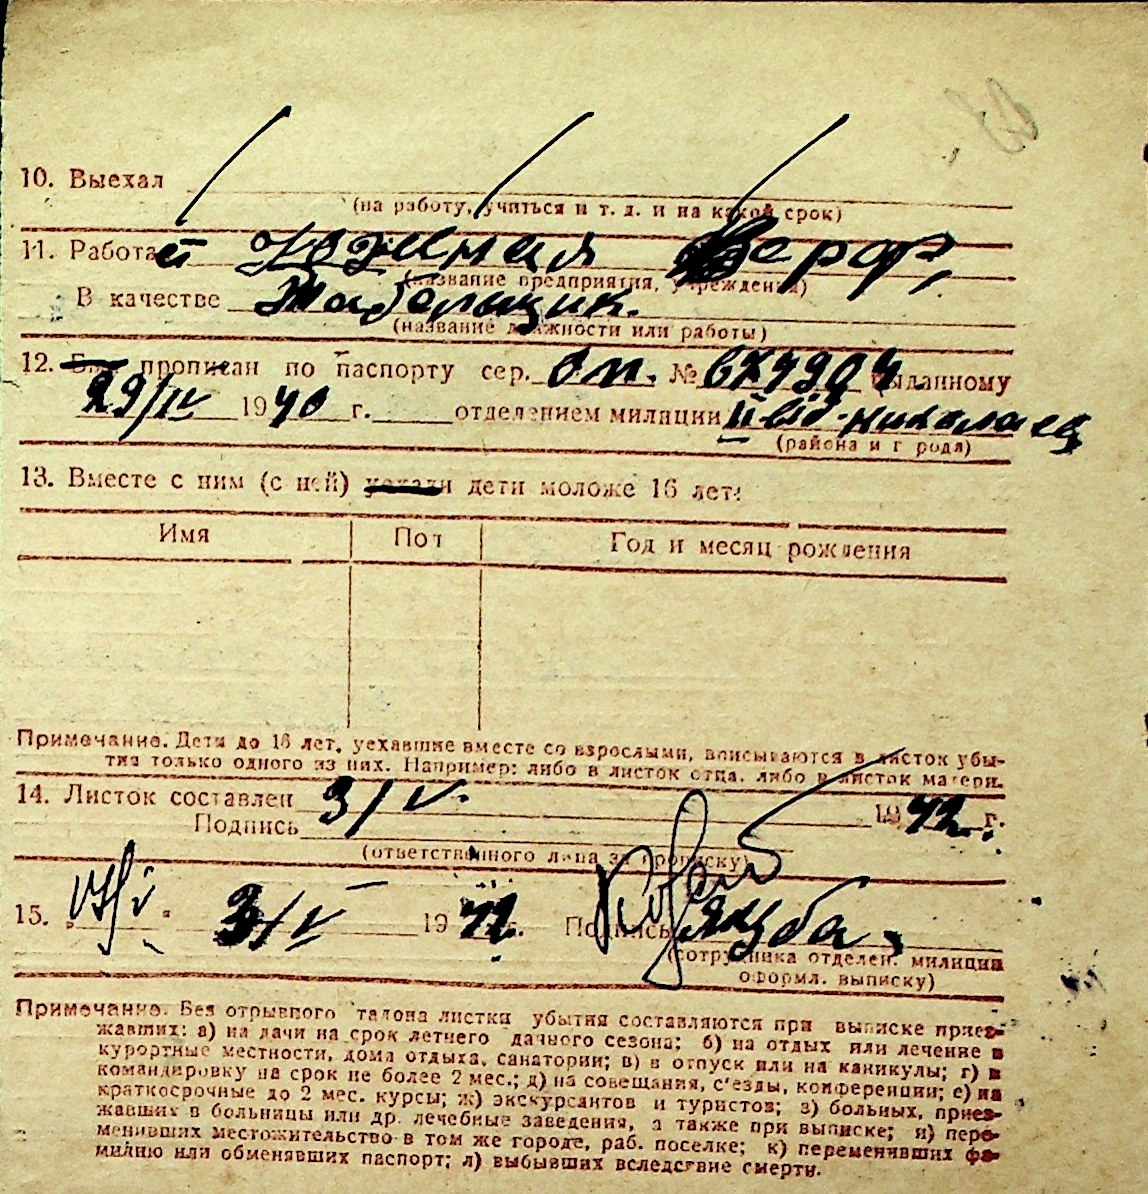 10. Выехал
(на работу, учиться и т. д. и на какой срок)
11. Работает Южная верфь,
(название предприятия, учреждения)
В качестве Табельщик.
(название должности или работы)
12. Был прописан по паспорту сер. № выданному
29/IV 1940 г. отделением милиции II от. Николаев
(района и города)
13. Вместе с ним (с ней) уехали дети моложе 16 лет:
Имя Пол Год и месяц рождения
Примечание. Дети до 16 лет, уехавшие вместе со взрослыми, вписываются в листок убы-
тия только одного из них. Например: либо в листок отца, либо в листок матери.
14. Листок составлен 3/V. 1942 г.
Подпись
(ответственного лица за прописку)
15. 3/V 1942 г. Подпись
(сотрудника отделен. милиции
оформл. выписку)
Примечание. Без отрывного талона листки убытия составляются при выписке приез-
жавших: а) на дачи на срок летнего дачного сезона; б) на отдых или лечение в
курортные местности, дома отдыха, санатории; в) в отпуск или на каникулы; г) в
командировку на срок не более 2 мес.; д) на совещания, с'езды, конференции; е) на
краткосрочные до 2 мес. курсы; ж) экскурсантов и туристов; з) больных, приез-
жавших в больницы или др. лечебные заведения, а также при выписке; и) пере-
менивших местожительство в том же городе, раб. поселке; к) переменивших фа-
милию или обменявших паспорт; л) выбывших вследствие смерти.